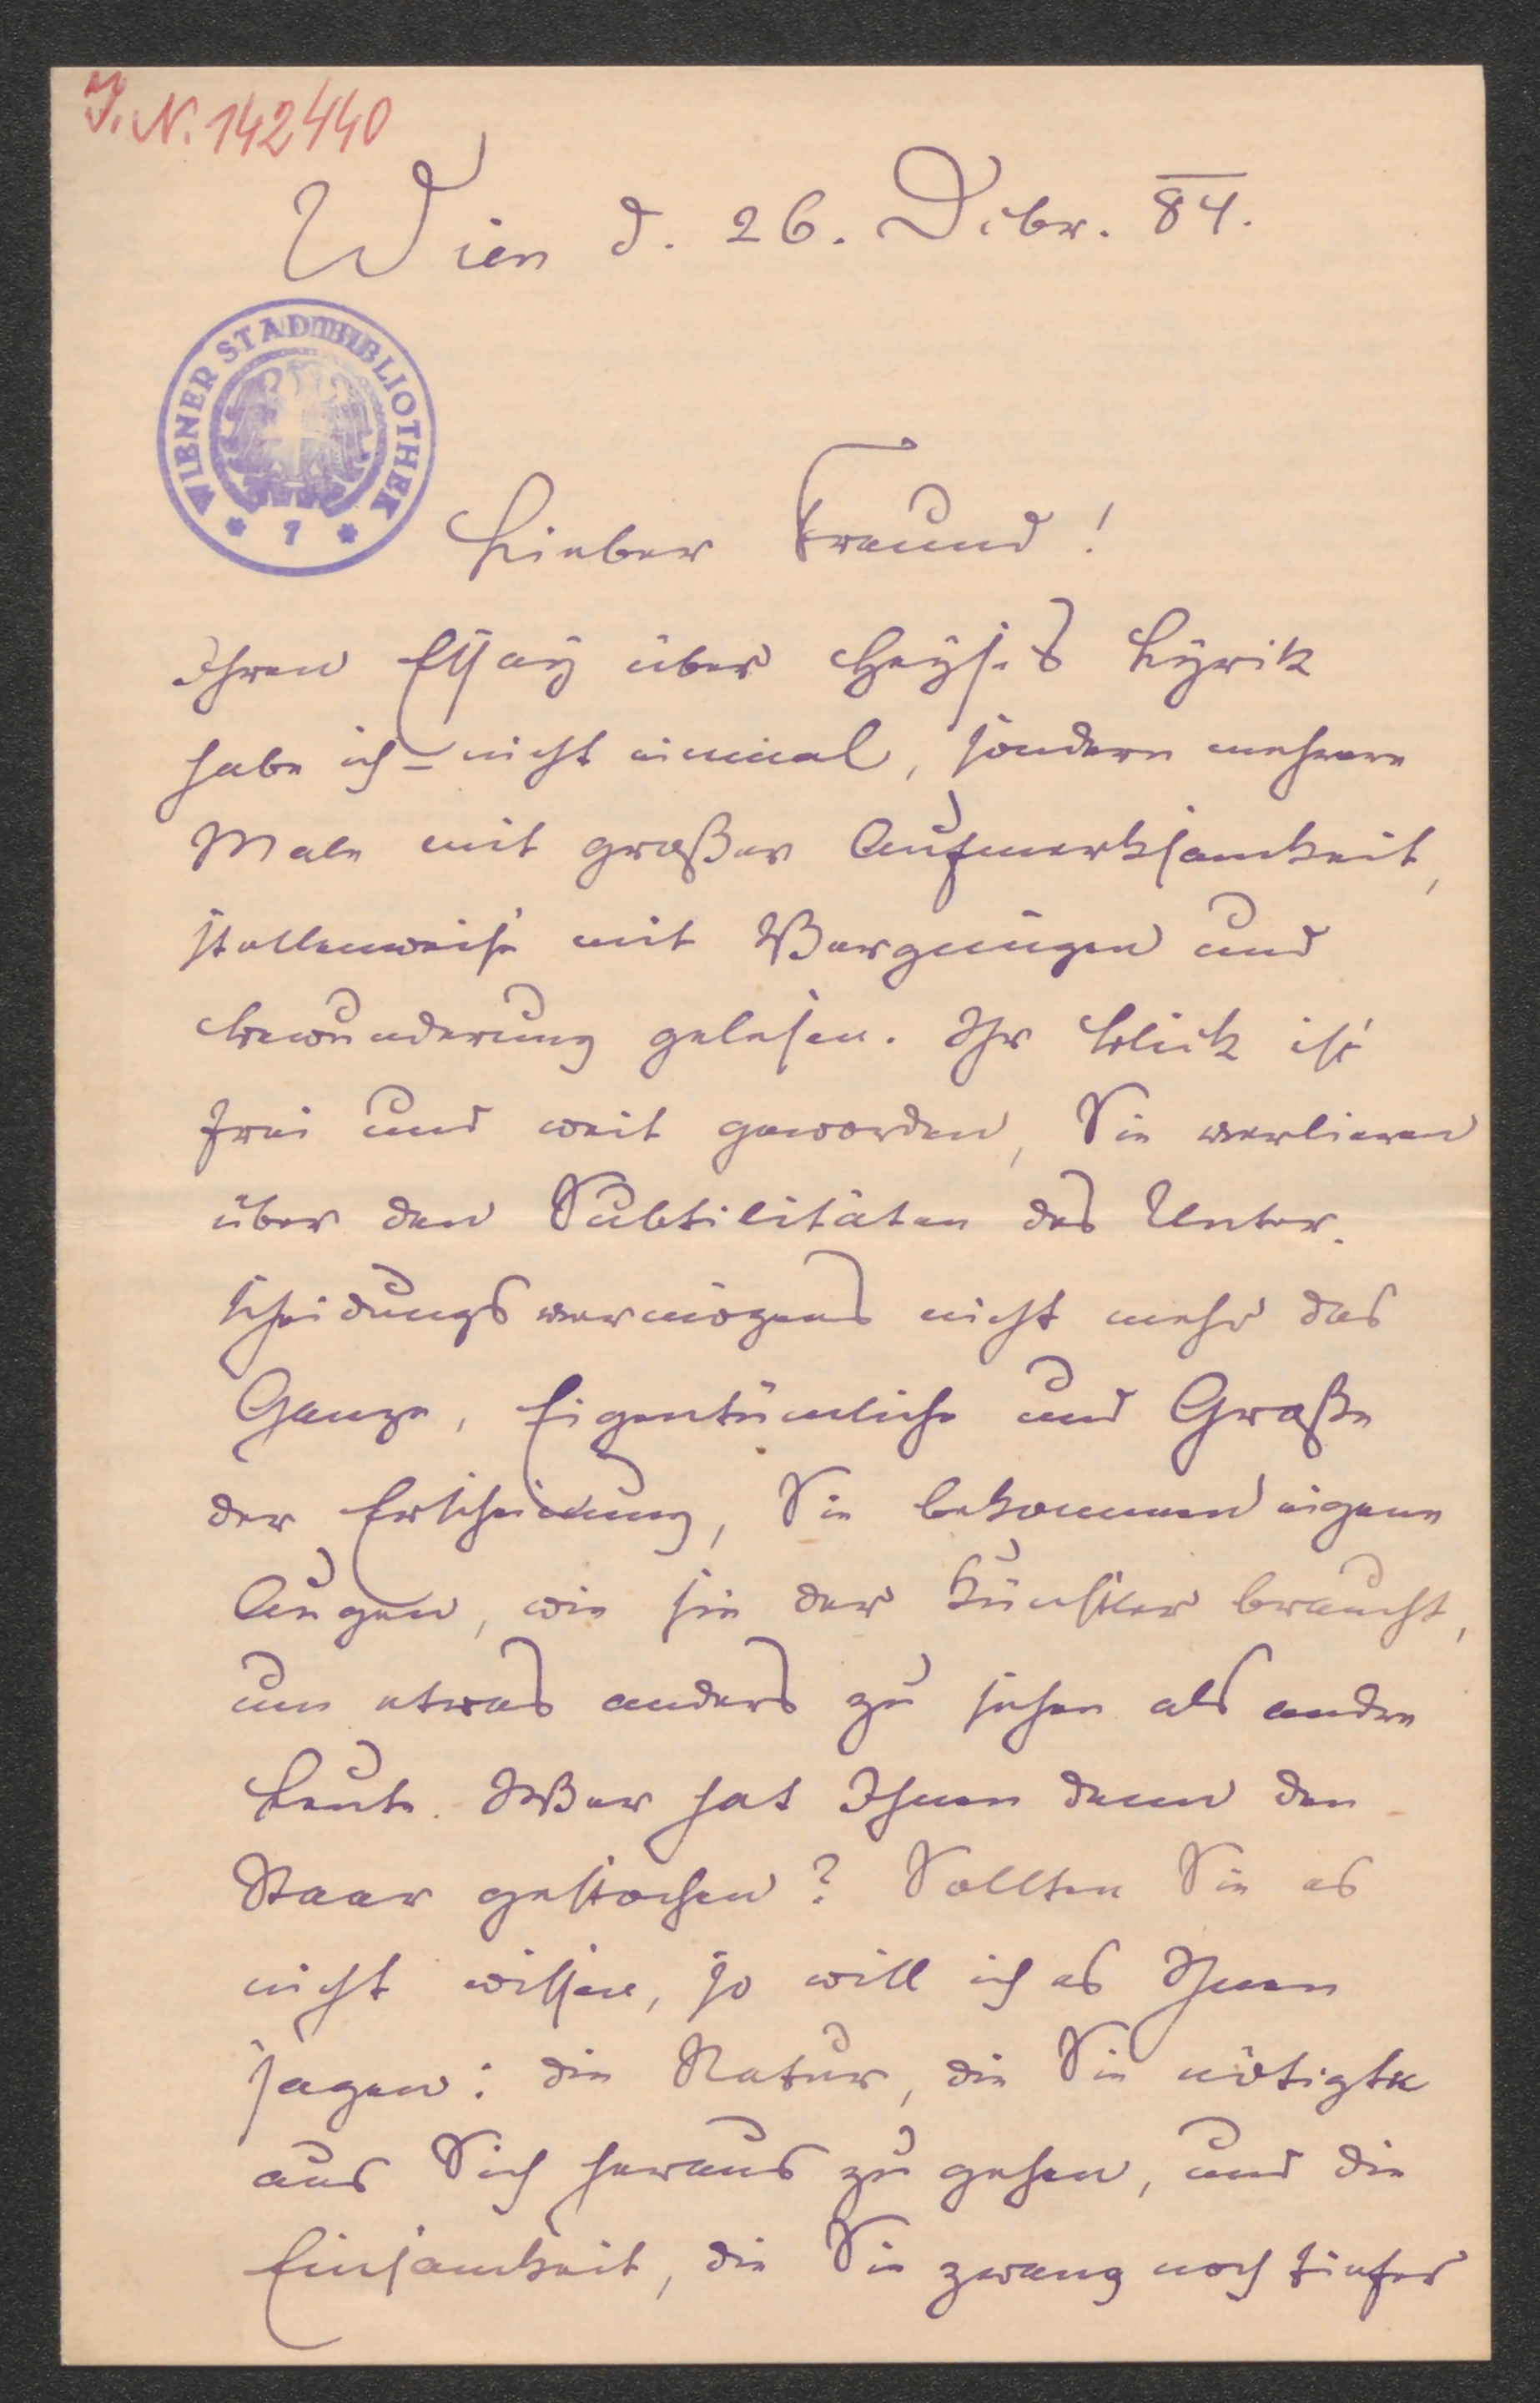 I. N. 142440
Wien d. 26. Dcbr. 84.
WIENER STADTBIBLIOTHEK
* 7 *
Lieber Freund!
Ihren Essay über Heyses Lyrik
habe ich – nicht einmal, sondern mehrere
Male mit großer Aufmerksamkeit,
stellenweise mit Vergnügen und
Bewunderung gelesen. Ihr Blick ist
frei und weit geworden, Sie verlieren
über den Subtilitäten des Unter-
scheidungsvermögens nicht mehr das
Ganze, Eigentümliche und Große
der Erscheinung, Sie bekommen eigene
Augen, wie sie der Künstler braucht,
um etwas anders zu sehen als andre
Leute. Wer hat Ihnen denn den
Staar gestochen? Sollten Sie es
nicht wissen, so will ich es Ihnen
sagen: die Natur, die Sie nötigte
aus Sich heraus zu gehen, und die
Einsamkeit, die Sie zwang noch tiefer